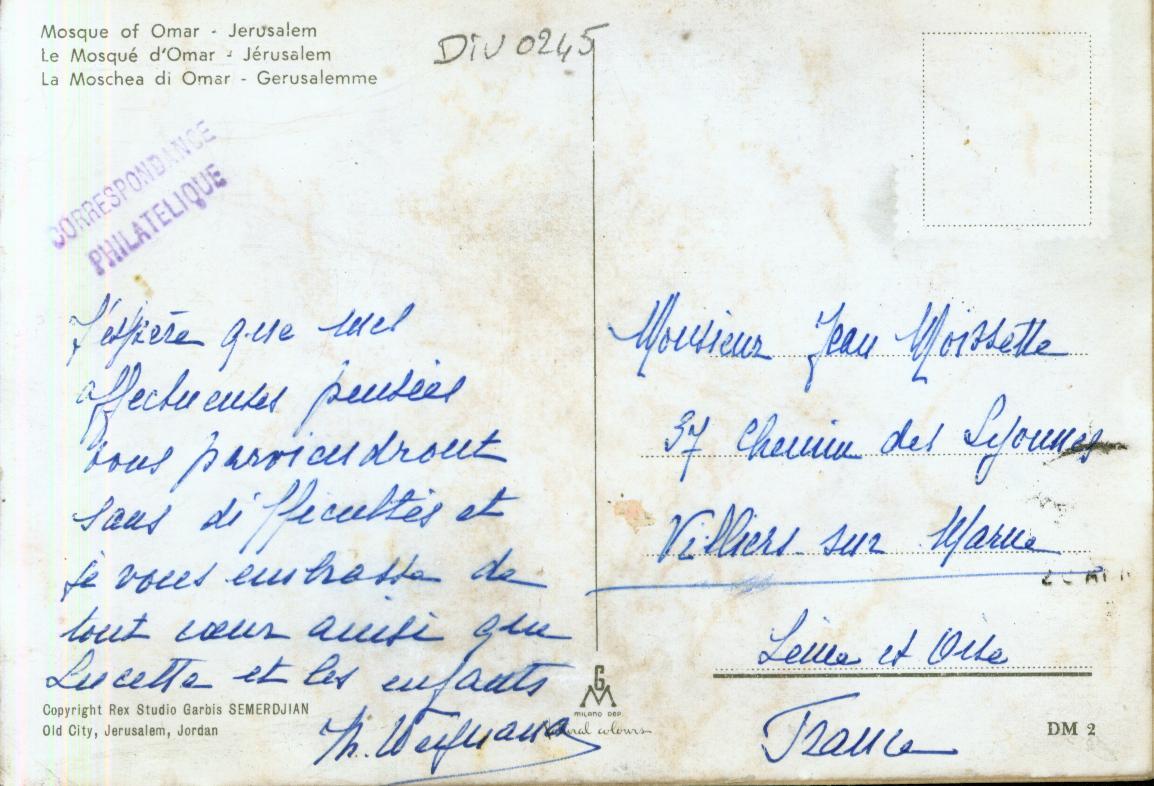 Mosque of Omar - Jerusalem
Le Mosqué d'Omar - Jérusalem
La Moschea di Omar - Gerusalemme
DIV 0245
CORRESPONDANCE
PHILATELIQUE
J'espère que mes
affectueuses pensées
vous parviendront
sans difficultés et
je vous embrasse de
tout cœur ainsi que
Lucette et les enfants
Monsieur Jean Moissette
37 Chemin des Lyonnes
Villiers sur Marne
Seine et Oise
France
Copyright Rex Studio Garbis SEMERDJIAN
Old City, Jerusalem, Jordan
MILANO DEP.
natural colours
DM 2